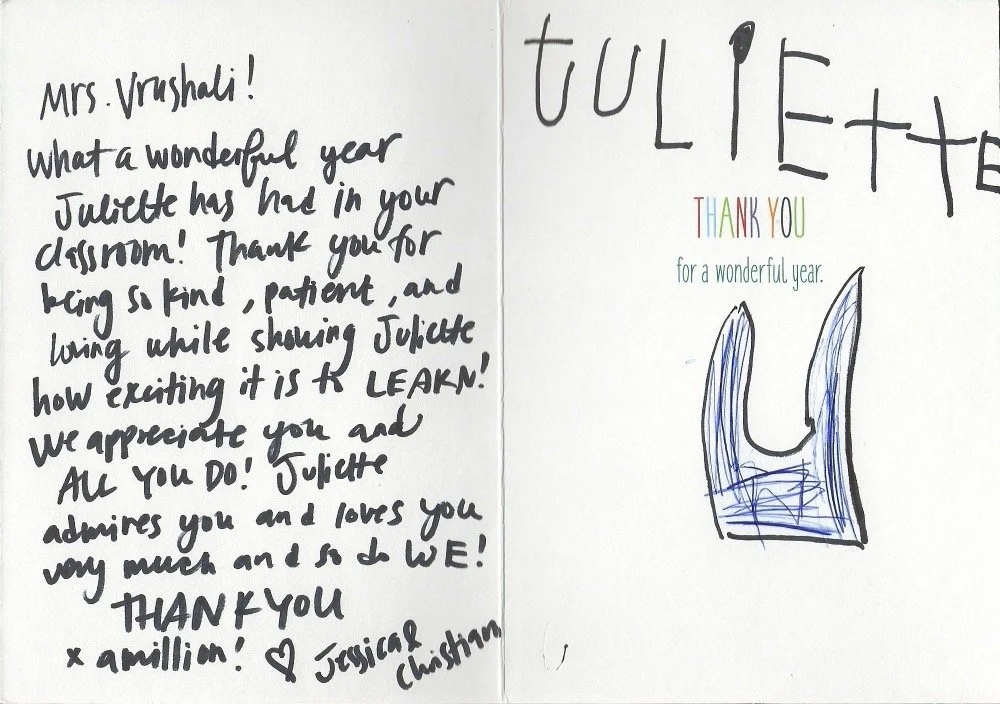 Mrs. Vrushali!
What a wonderful year
Juliette has had in your
classroom! Thank you for
being so kind, patient, and
loving while showing Juliette
how exciting it is to LEARN!
We appreciate you and
ALL YOU DO! Juliette
admires you and loves you
very much and so do WE!
THANK YOU
x a million! ♡ Jessica &
Christian
JULIEttE
THANK YOU
for a wonderful year.